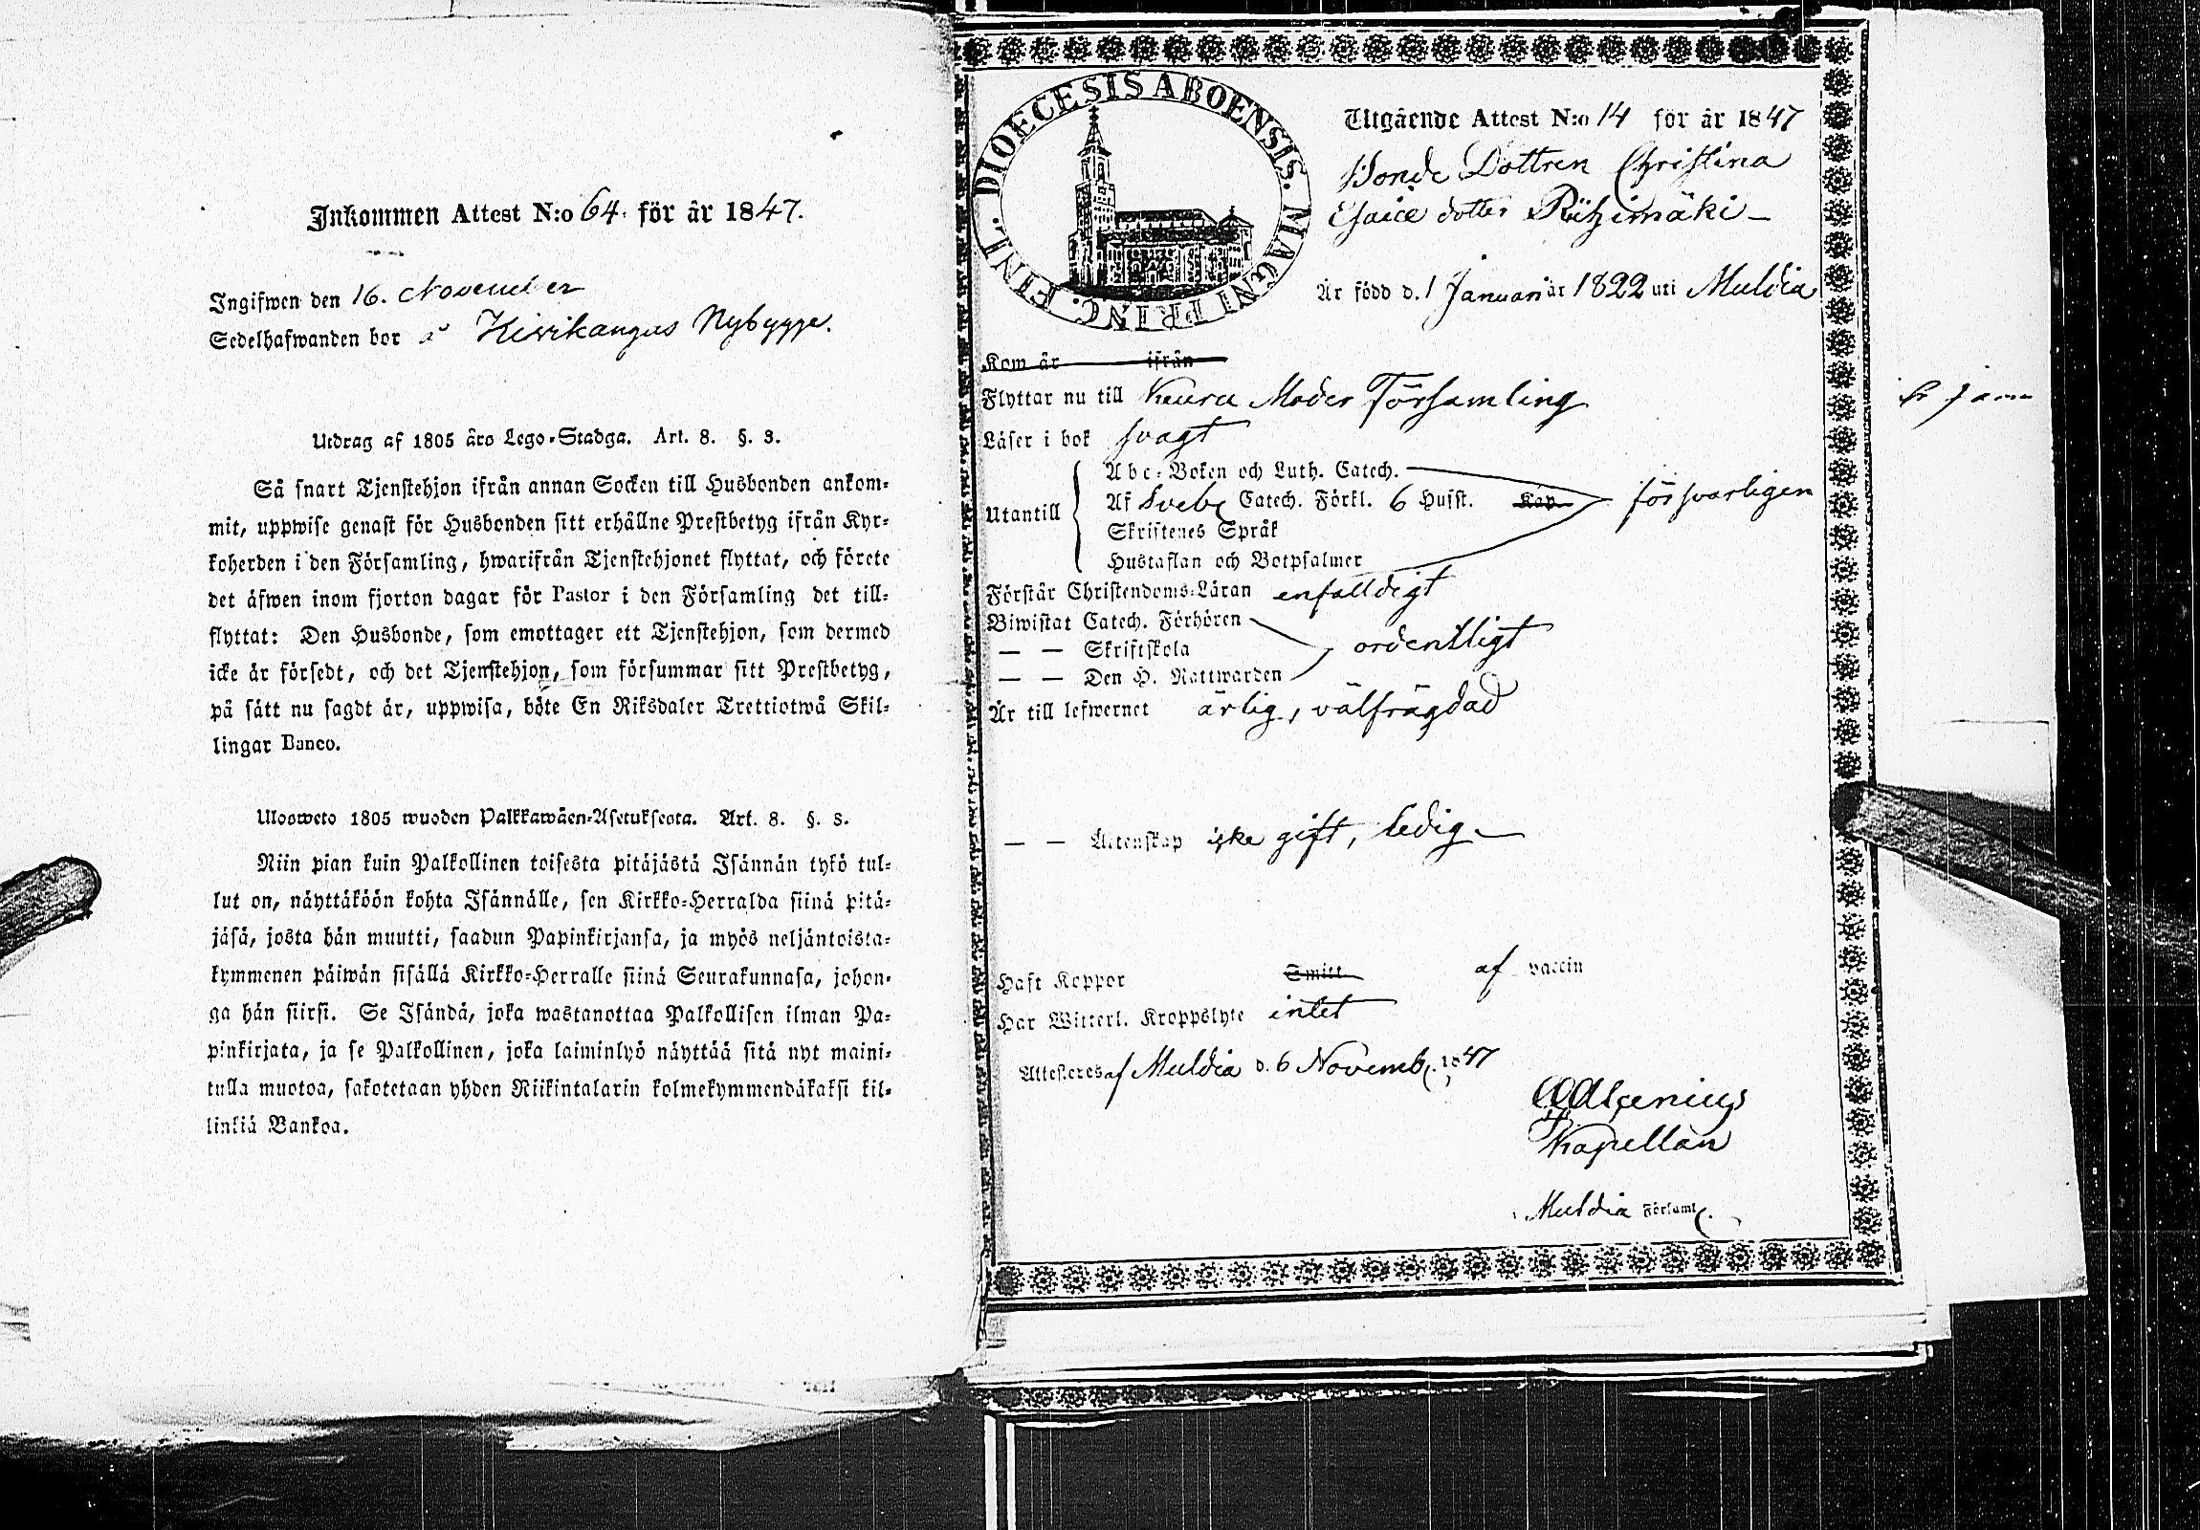 Inkommen Attest N:o 64. för år 1847.
Ingifwen den 16. November
Sedelhafwanden bor å Hirvikangas Nybygge.
Utdrag af 1805 års Lego-Stadga. Art. 8. §. 3.
Så snart Tjenstehjon ifrån annan Socken till Husbonden ankom-
mit, uppwise genast för Husbonden sitt erhållne Prestbetyg ifrån Kyr-
koherden i den Församling, hwarifrån Tjenstehjonet flyttat, och förete
det äfwen inom fjorton dagar för Pastor i den Församling det till-
flyttat: Den Husbonde, som emottager ett Tjenstehjon, som dermed
icke är försedt, och det Tjenstehjon, som försummar sitt Prestbetyg,
på sätt nu sagdt är, uppwisa, böte En Riksdaler Trettiotwå Skil-
lingar Banco.
Ulosweto 1805 wuoden Palkkawäen-Asetuksesta. Art. 8. §. 3.
Niin pian kuin Palkollinen toisesta pitäjästä Isännän tykö tul-
lut on, näyttäköön kohta Isännälle, sen Kirkko-Herralda siinä pitä-
jäsä, josta hän muutti, saadun Papinkirjansa, ja myös neljäntoista-
kymmenen päiwän sisällä Kirkko-Herralle siinä Seurakunnasa, johon-
ga hän siirsi. Se Isändä, joka wastanottaa Palkollisen ilman Pa-
pinkirjata, ja se Palkollinen, joka laiminlyö näyttää sitä nyt maini-
tulla muotoa, sakotetaan yhden Riikintalarin kolmekymmendäkaksi kil-
linkiä Bankoa.
DIOECESIS ABOENSIS. MAGNI PRINC. FINL.
Utgående Attest N:o 14 för år 1847
Bonde Dottren Christina
Esaiæ dotter Riihimäki
Är född d. 1 Januari år 1822 uti Muldia
Kom år ifrån
Flyttar nu till Keuru Moder Församling
Läser i bok svagt
Utantill
Abc-Boken och Luth. Catech.
Af Svebe Catech. Förkl. 6 Hufst. Kap försvarligen
Skriftenes Språk
Hustaflan och Botpsalmer
Förstår Christendoms-Läran enfalldigt
Biwistat Catech. Förhören
— — Skriftskola ordentligt
— — Den H. Nattwarden
Är till lefwernet ärlig, välfrägdad
— — Äktenskap icke gift, ledig
Haft Koppor Smitt af vaccin
Har Witterl. Kroppslyte intet
Attesteres af Muldia d. 6 Novemb. 1847
Kapellan
Muldia Förſaml.